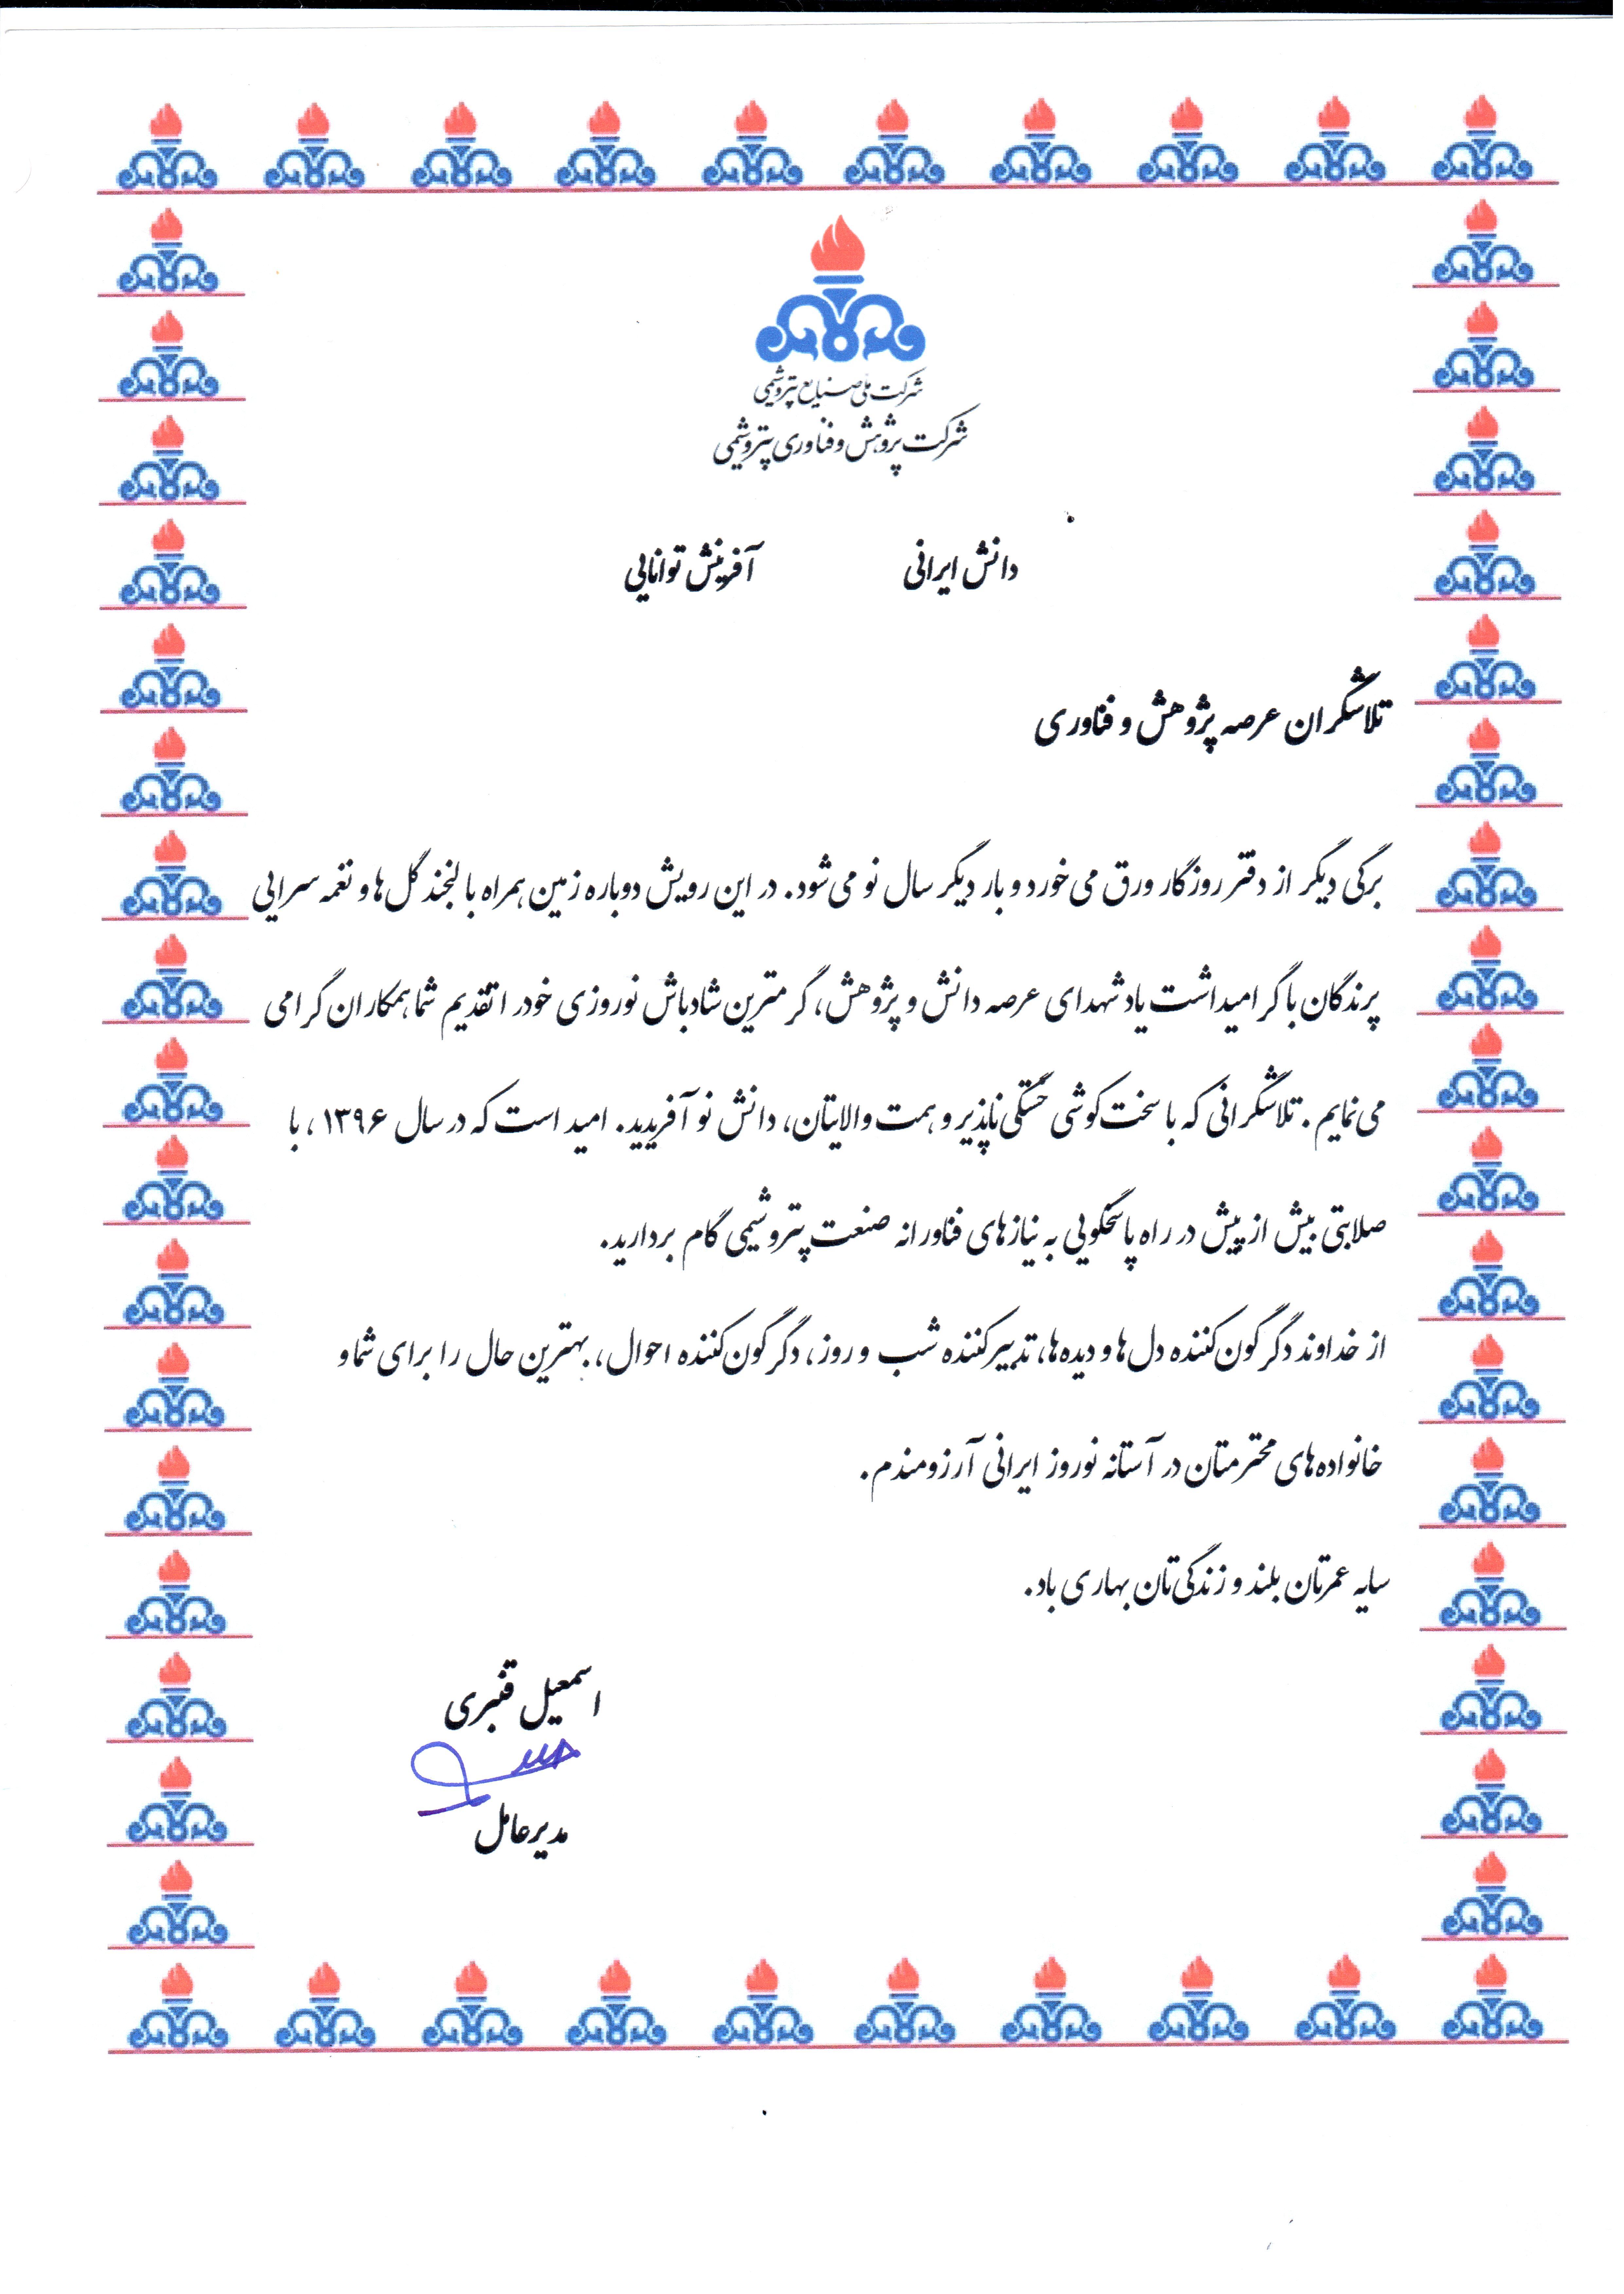 شرکت ملی صنایع پتروشیمی
شرکت پژوهش و فناوری پتروشیمی
دانش ایرانی آفرینش توانایی
تلاشگران عرصه پژوهش و فناوری
برگی دیگر از دفتر روزگار ورق می خورد و بار دیگر سال نو می شود. در این رویش دوباره زمین همراه با لبخند گل ها و نغمه سرایی
پرندگان با گرامیداشت یاد شهدای عرصه دانش و پژوهش، گرمترین شادباش نوروزی خود را تقدیم شما همکاران گرامی
می نمایم. تلاشگرانی که با سخت کوشی خستگی ناپذیر و همت والایتان، دانش نو آفریدید. امید است که در سال ۱۳۹۶، با
صلابتی بیش از پیش در راه پاسخگویی به نیازهای فناورانه صنعت پتروشیمی گام بردارید.
از خداوند دگرگون کننده دل ها و دیده ها، تدبیر کننده شب و روز، دگرگون کننده احوال، بهترین حال را برای شما و
خانواده های محترمتان در آستانه نوروز ایرانی آرزومندم.
سایه عمرتان بلند و زندگی تان بهاری باد.
اسمعیل قنبری
مدیرعامل